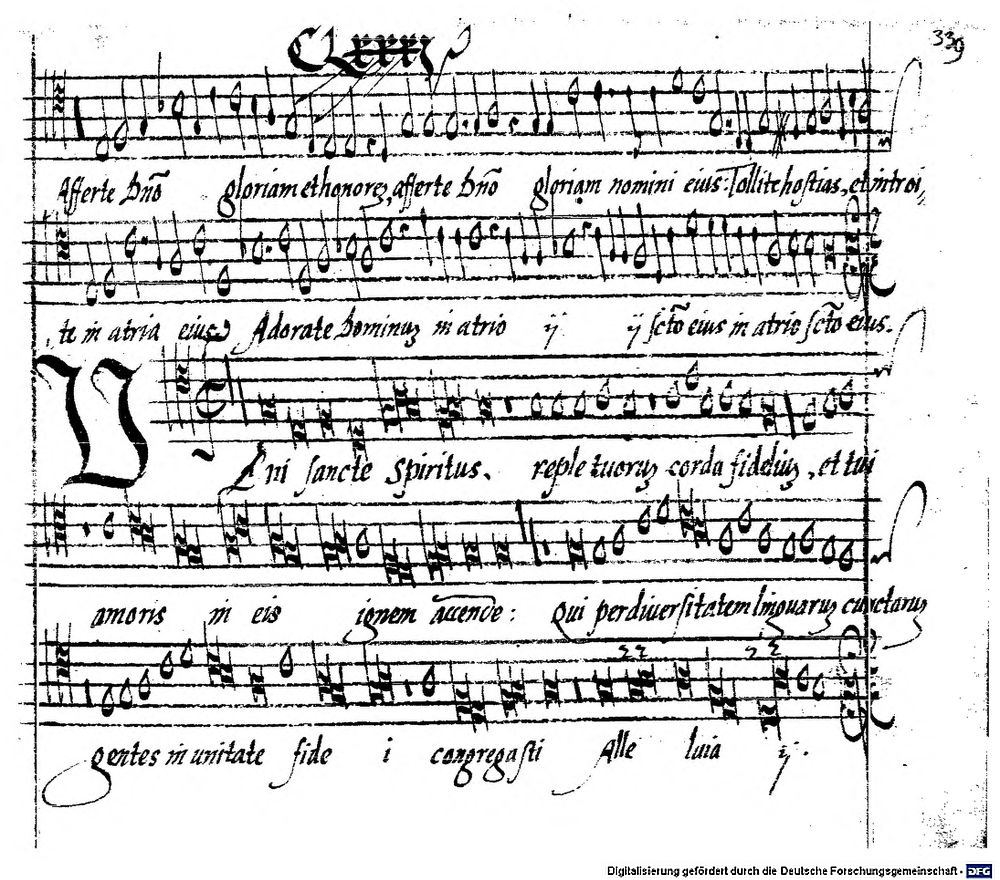 CLxxxj
339
Afferte dno gloriam et honorez, afferte dno gloriam nomini eius: Tollite hostias, et introi,
te in atria eius Adorate dominuz in atrio ij ij scto eius in atrio scto eius.
VEni sancte Spiritus. reple tuoruz corda fideliuz, et tui
amoris in eis ignem accende: Qui per diuersitatem linguaruz cunctaruz
gentes in unitate fide i congregasti Alle luia ij.
Digitalisierung gefördert durch die Deutsche Forschungsgemeinschaft - DFG